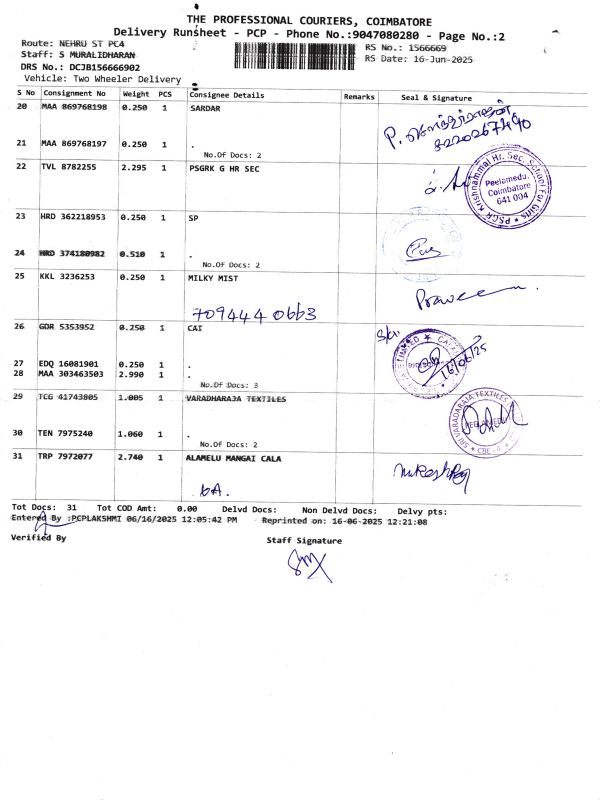 THE PROFESSIONAL COURIERS, COIMBATORE
Delivery Runsheet - PCP - Phone No.:9047080280 - Page No.:2
Route: NEHRU ST PC4
RS No.: 1566669
Staff: S MURALIDHARAN
RS Date: 16-Jun-2025
DRS No.: DCJB156666902
Vehicle: Two Wheeler Delivery
S No Consignment No Weight PCS Consignee Details Remarks Seal & Signature
20 MAA 869768198 0.250 1 SARDAR
21 MAA 869768197 0.250 1 .
No.Of Docs: 2
22 TVL 8782255 2.295 1 PSGRK G HR SEC
PSGR Krishnammal Hr. Sec. School For Girls
Peelamedu,
Coimbatore
641 004
23 HRD 362218953 0.250 1 SP
24 HRD 374180982 0.510 1 .
No.Of Docs: 2
25 KKL 3236253 0.250 1 MILKY MIST
Praveen
709444 0663
26 GDR 5353952 0.250 1 CAI
16/06/25
27 EDQ 16081901 0.250 1 .
28 MAA 303463503 2.990 1 .
No.Of Docs: 3
29 TCG 41743805 1.005 1 VARADHARAJA TEXTILES
SRI VARADARAJA TEXTILES
PEELAMEDU
CBE - 4
30 TEN 7975240 1.060 1 .
No.Of Docs: 2
31 TRP 7972077 2.740 1 ALAMELU MANGAI CALA
Tot Docs: 31 Tot COD Amt: 0.00 Delvd Docs: Non Delvd Docs: Delvy pts:
Entered By :PCPLAKSHMI 06/16/2025 12:05:42 PM Reprinted on: 16-06-2025 12:21:08
Verified By
Staff Signature